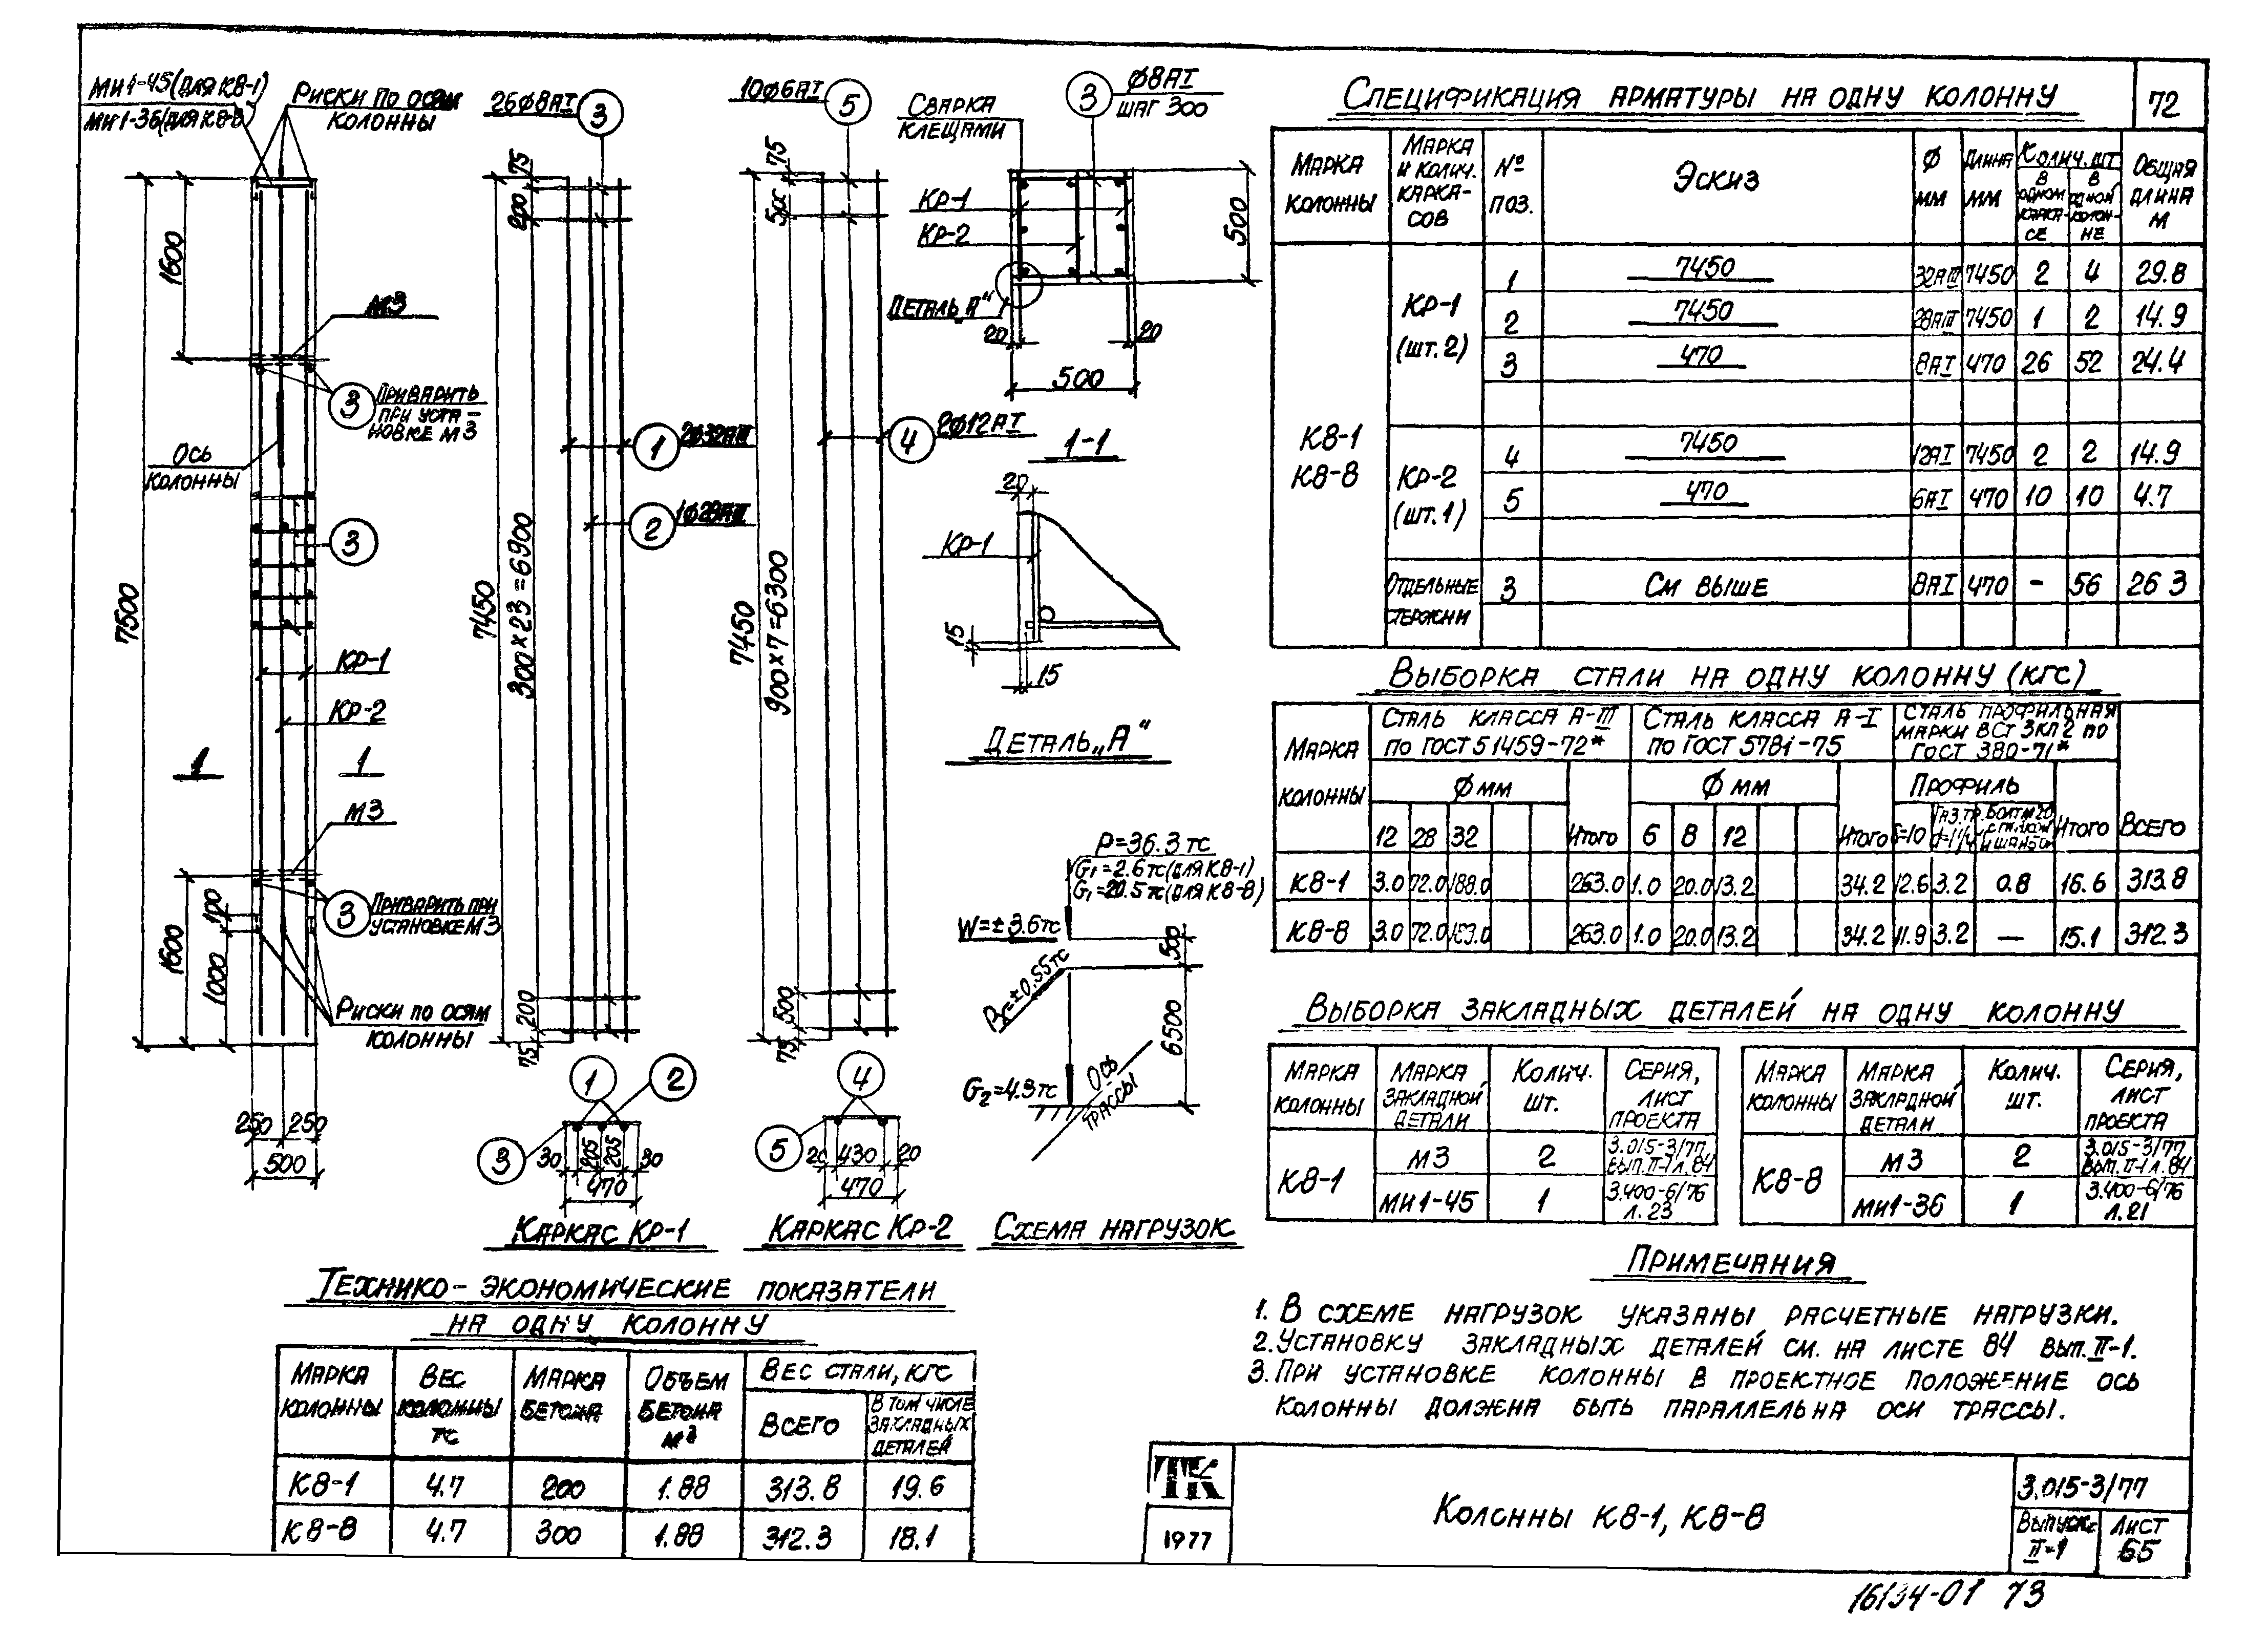 МИ1-45(для К8-1)
МИ1-36(для К8-8)
Риски по осям
колонны
7500
1600
М3
3
Приварить
при уста-
новке М3
Ось
колонны
3
Кр-1
Кр-2
1 1
М3
3
Приварить при
установке М3
100
1600
1000
Риски по осям
колонны
250 250
500
26⌀8АI 3
75
200
7450
300×23=6900
1 2⌀32АIII
2 1⌀28АIII
200
75
1 2
3
30 205 205 30
470
Каркас Кр-1
10⌀6АI 5
75
500
7450
900×7=6300
4 2⌀12АI
500
75
4
5
20 430 20
470
Каркас Кр-2
Сварка
клещами
3 ⌀8АI
шаг 300
Кр-1
Кр-2
Деталь „А“
500
20 20
500
1-1
20
Кр-1
15
15
Деталь „А“
P=36.3 тс
G₁=2.6 тс(для К8-1)
G₁=20.5 тс(для К8-8)
W=±3.6тс
=±0.55тс
500
6500
G₂=4.3тс
Ось
трассы
Схема нагрузок
Технико-экономические показатели
на одну колонну
Марка колонны Вес колонны тс Марка бетона Объем бетона м³ Вес стали, кгс
Всего В том числе закладных деталей
К8-1 4.7 200 1.88 313.8 19.6
К8-8 4.7 300 1.88 312.3 18.1
Спецификация арматуры на одну колонну
72
Марка колонны Марка и колич. карка-сов № поз. Эскиз ⌀ мм Длина мм Колич. шт Общая длина м
В одном карка-се В одной колон-не
К8-1
К8-8
Кр-1
(шт.2)
1 7450 32АIII 7450 2 4 29.8
2 7450 28АIII 7450 1 2 14.9
3 470 8АI 470 26 52 24.4
Кр-2
(шт.1)
4 7450 12АI 7450 2 2 14.9
5 470 6АI 470 10 10 4.7
Отдельные
стержни
3 См выше 8АI 470 - 56 26 3
Выборка стали на одну колонну (кгс)
Марка колонны Сталь класса А-III по ГОСТ 51459-72* Сталь класса А-I по ГОСТ 5781-75 Сталь профильная марки ВСт 3кп2 по ГОСТ 380-71* Всего
⌀ мм Итого ⌀ мм Итого Профиль Итого
12 28 32 6 8 12 δ=10 Газ.тр. Болт м20
К8-1 3.0 72.0 188.0 263.0 1.0 20.0 13.2 34.2 12.6 3.2 0.8 16.6 313.8
К8-8 3.0 72.0 263.0 1.0 20.0 13.2 34.2 11.9 3.2 — 15.1 312.3
Выборка закладных деталей на одну колонну
Марка колонны Марка закладной детали Колич. шт. Серия, лист проекта
К8-1
М3 2 3.015-3/77 вып.II-1 л.84
МИ1-45 1 3.400-6/76 л.23
Марка колонны Марка закладной детали Колич. шт. Серия, лист проекта
К8-8
М3 2 3.015-3/77 вып.II-1 л.84
МИ1-36 1 3.400-6/76 л.21
Примечания
1. В схеме нагрузок указаны расчетные нагрузки.
2. Установку закладных деталей см. на листе 84 вып.II-1.
3. При установке колонны в проектное положение ось
колонны должна быть параллельна оси трассы.
ТК
1977
Колонны К8-1, К8-8
3.015-3/77
Выпуск
II-1
Лист
65
16134-01 73